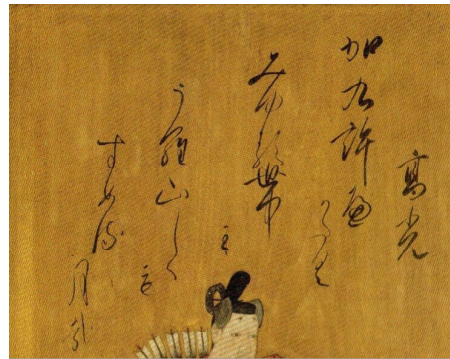 高光
加九許遍
かたく
みゆる世中
に
う羅山しく
も
すめる
月哉